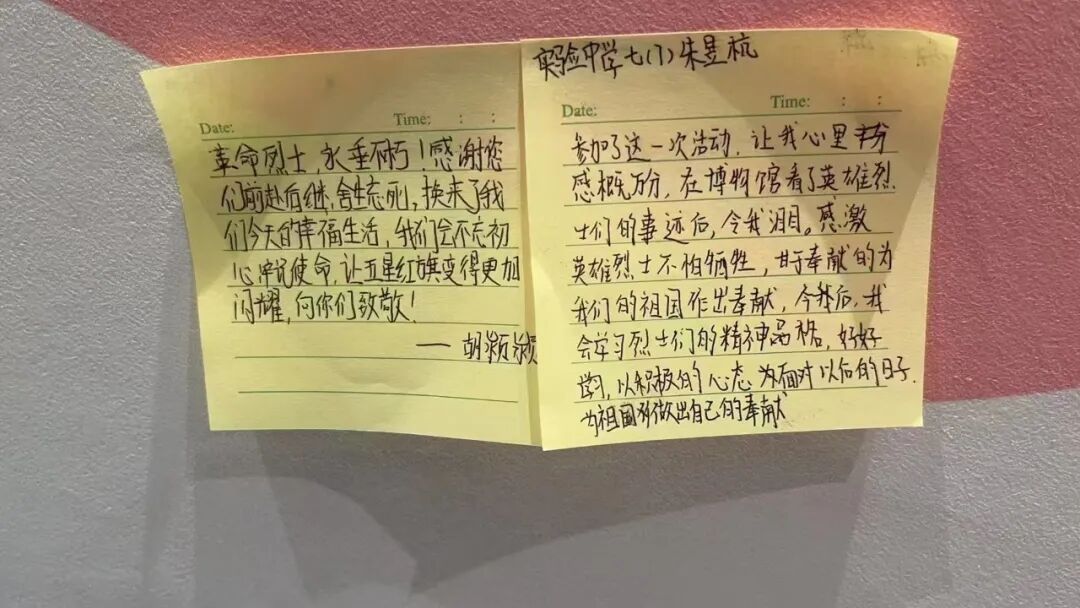 Date: Time: : :
革命烈士，永垂不朽！感谢您
们前赴后继，舍生忘死，换来了我
们今天的幸福生活，我们会不忘初
心牢记使命，让五星红旗变得更加
闪耀，向你们致敬！
——胡颖
实验中学七(1)朱昱杭
Date: Time: : :
参加了这一次活动，让我心里
感概万分，在博物馆看了英雄烈
士们的事迹后，令我泪目。感激
英雄烈士不怕牺牲，甘于奉献的为
我们的祖国作出奉献，今我后，我
会学习烈士们的精神品格，好好
学习，以积极的心态 为面对以后的日子.
为祖国 做出自己的奉献